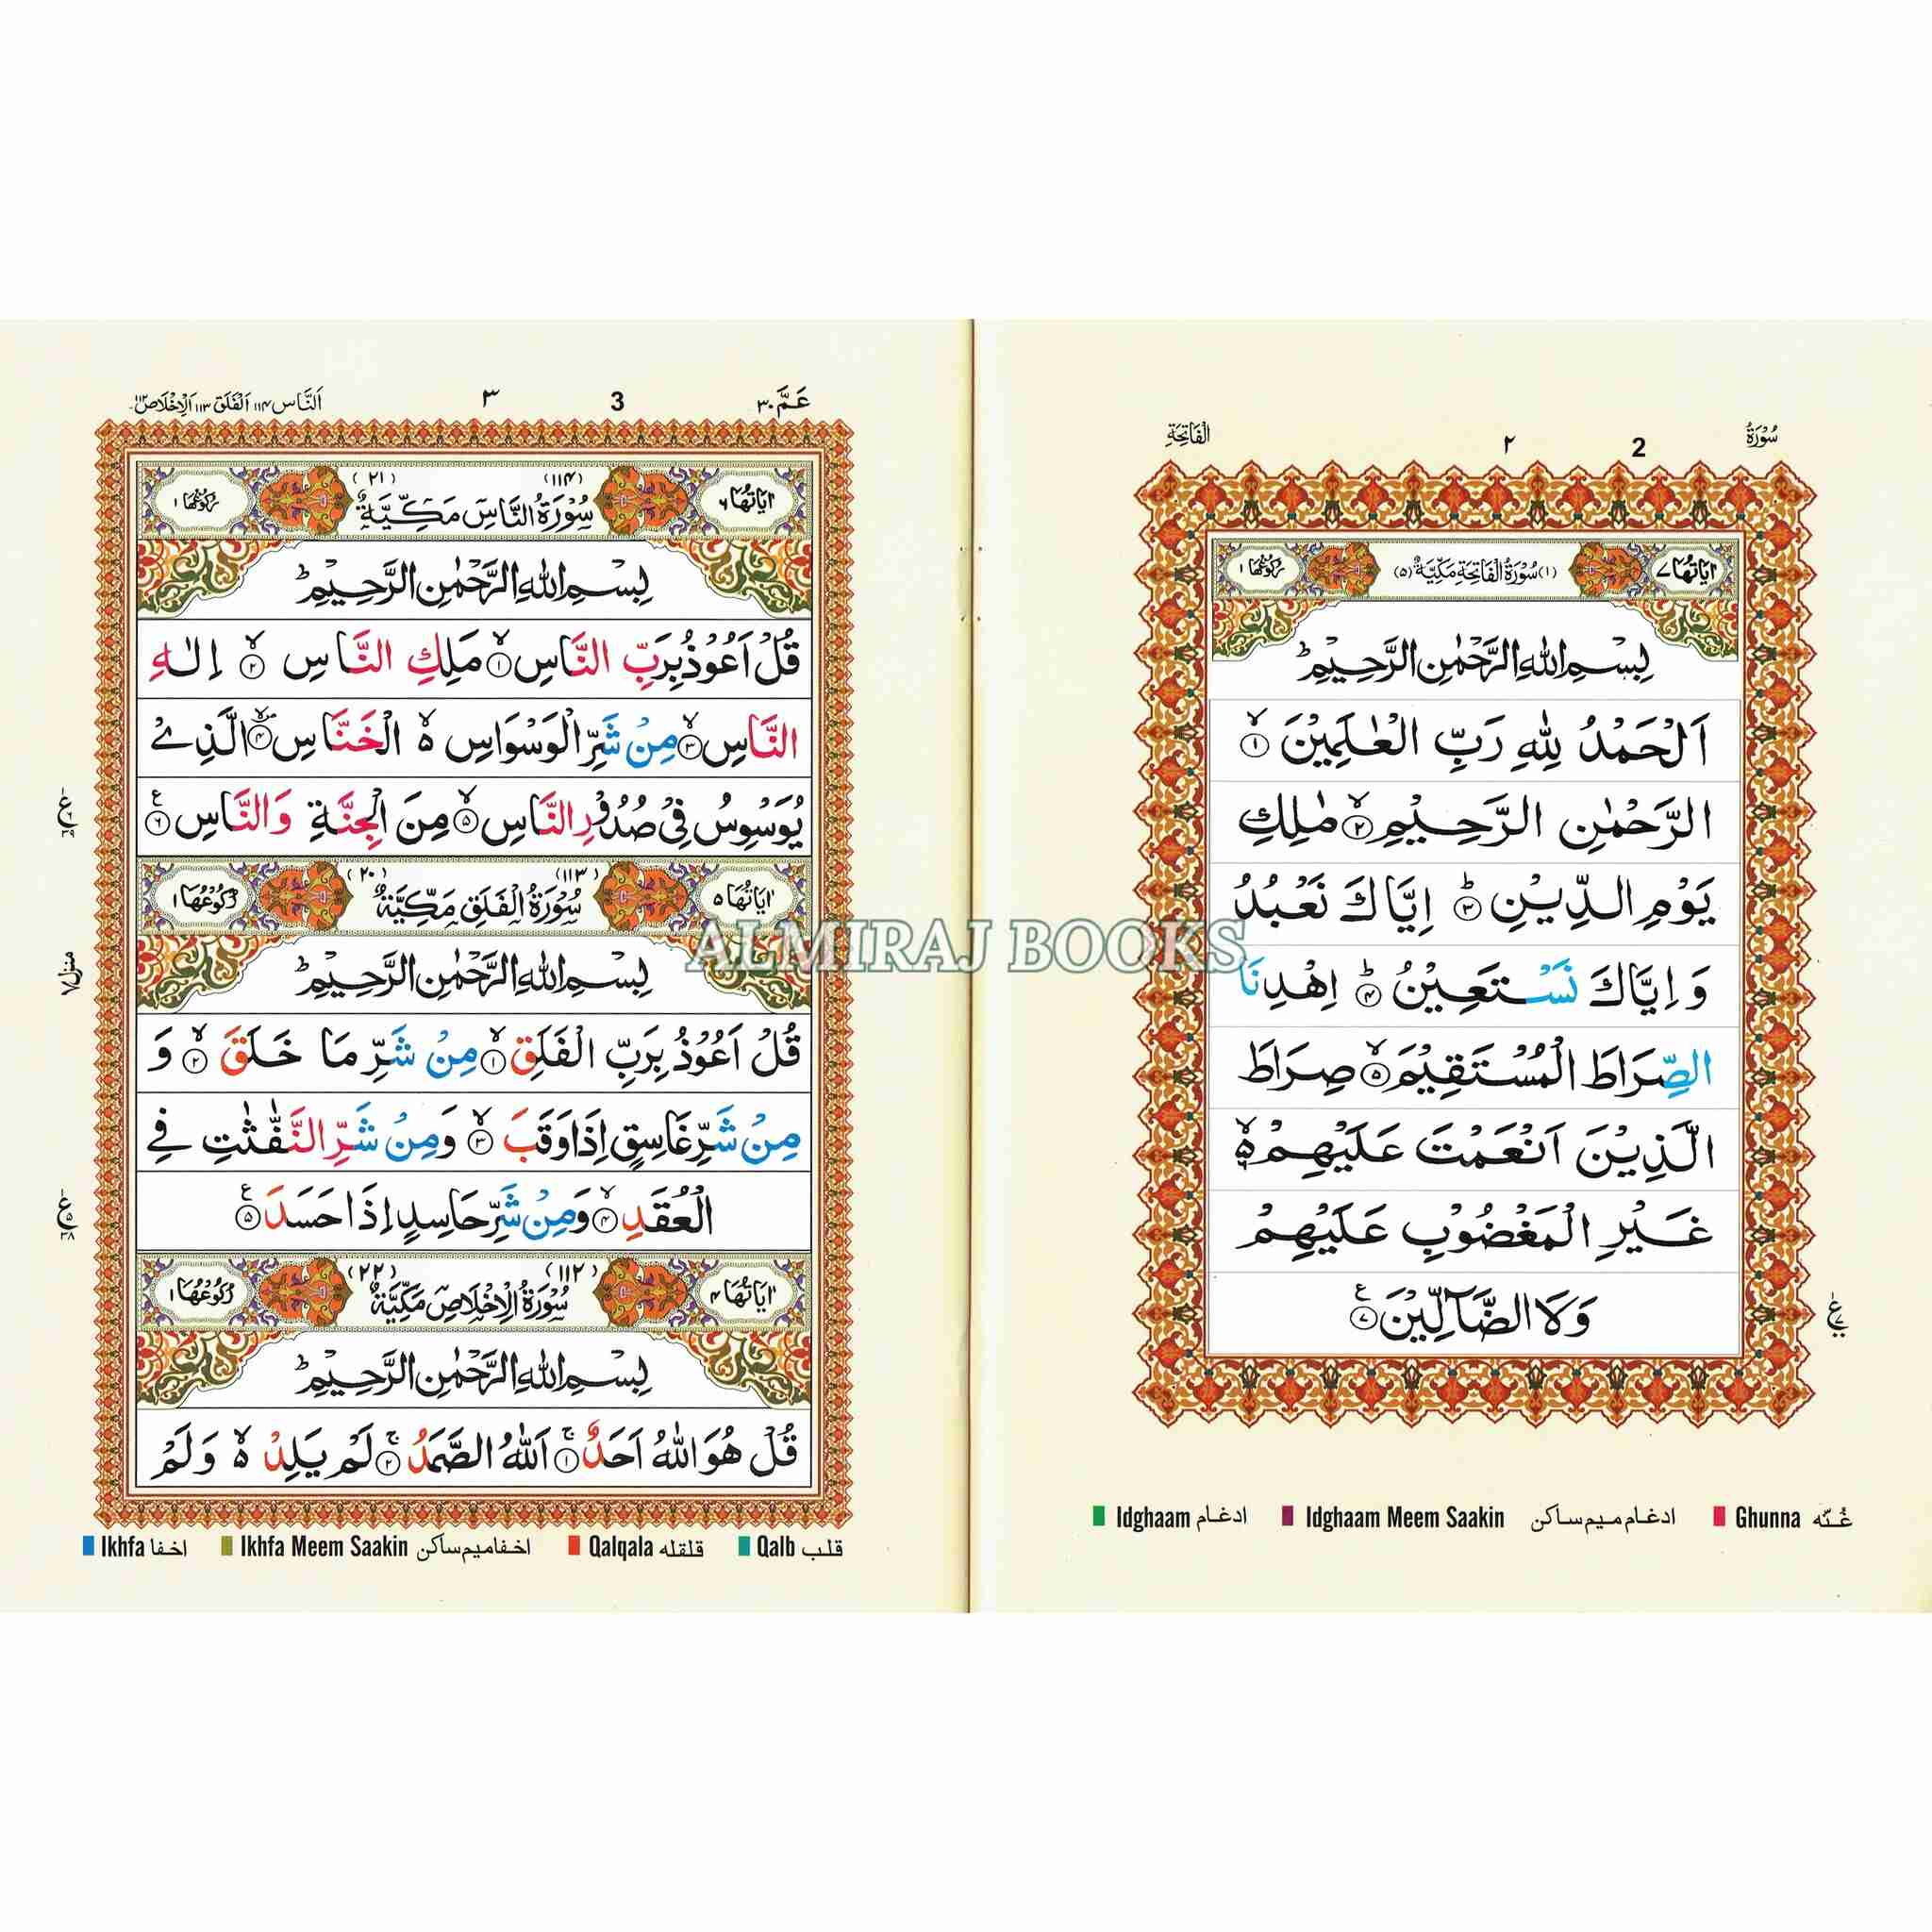 سُوْرَةُ 2 ٢ الْفَاتِحَةِ
اٰيَاتُهَا ٧ (١) سُوْرَةُ الْفَاتِحَةِ مَكِّيَّةٌ (٥) رُكُوْعُهَا ١
بِسْمِ اللّٰهِ الرَّحْمٰنِ الرَّحِيْمِ ؕ
اَلْحَمْدُ لِلّٰهِ رَبِّ الْعٰلَمِيْنَ ۙ ١
الرَّحْمٰنِ الرَّحِيْمِ ۙ ٢ مٰلِكِ
يَوْمِ الدِّيْنِ ؕ ٣ اِيَّاكَ نَعْبُدُ
وَ اِيَّاكَ نَسْتَعِيْنُ ؕ ٤ اِهْدِنَا
الصِّرَاطَ الْمُسْتَقِيْمَ ۙ ٥ صِرَاطَ
الَّذِيْنَ اَنْعَمْتَ عَلَيْهِمْ ۙ ٦
غَيْرِ الْمَغْضُوْبِ عَلَيْهِمْ
وَلَا الضَّآلِّيْنَ ٧ ع
Idghaam ادغام Idghaam Meem Saakin ادغام ميم ساكن Ghunna غُنّه
عَمَّ ٣٠ 3 ٣ اَلنَّاس ١١٤ اَلْفَلَق ١١٣ اَلْاِخْلَاص ١١٢
اٰيَاتُهَا ٦ (١١٤) سُوْرَةُ النَّاسِ مَكِّيَّةٌ (٢١) رُكُوْعُهَا ١
بِسْمِ اللّٰهِ الرَّحْمٰنِ الرَّحِيْمِ ؕ
قُلْ اَعُوْذُ بِرَبِّ النَّاسِ ۙ ١ مَلِكِ النَّاسِ ۙ ٢ اِلٰهِ
النَّاسِ ۙ ٣ مِنْ شَرِّ الْوَسْوَاسِ ۙ الْخَنَّاسِ ٤ الَّذِيْ
يُوَسْوِسُ فِيْ صُدُوْرِ النَّاسِ ۙ ٥ مِنَ الْجِنَّةِ وَالنَّاسِ ٦ ع
اٰيَاتُهَا ٥ (١١٣) سُوْرَةُ الْفَلَقِ مَكِّيَّةٌ (٢٠) رُكُوْعُهَا ١
بِسْمِ اللّٰهِ الرَّحْمٰنِ الرَّحِيْمِ ؕ
قُلْ اَعُوْذُ بِرَبِّ الْفَلَقِ ۙ ١ مِنْ شَرِّ مَا خَلَقَ ۙ ٢ وَ
مِنْ شَرِّ غَاسِقٍ اِذَا وَقَبَ ۙ ٣ وَ مِنْ شَرِّ النَّفّٰثٰتِ فِي
الْعُقَدِ ۙ ٤ وَمِنْ شَرِّ حَاسِدٍ اِذَا حَسَدَ ٥ ع
اٰيَاتُهَا ٤ (١١٢) سُوْرَةُ الْاِخْلَاصِ مَكِّيَّةٌ (٢٢) رُكُوْعُهَا ١
بِسْمِ اللّٰهِ الرَّحْمٰنِ الرَّحِيْمِ ؕ
قُلْ هُوَ اللّٰهُ اَحَدٌ ۚ ١ اَللّٰهُ الصَّمَدُ ۚ ٢ لَمْ يَلِدْ ۙ وَلَمْ
منزل ٧
Ikhfa اخفا Ikhfa Meem Saakin اخفاميم ساكن Qalqala قلقله Qalb قلب
ALMIRAJ BOOKS